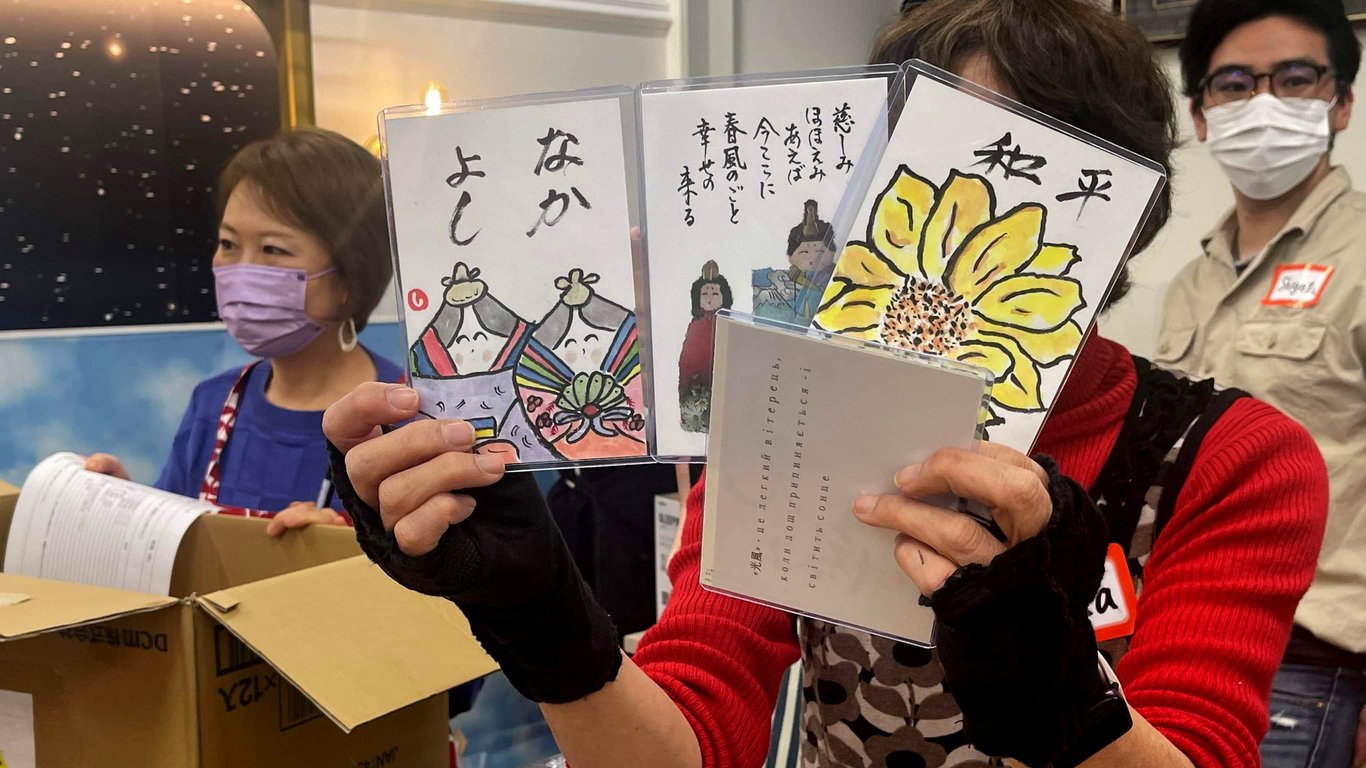 なか
よし
し
慈しみ
ほほえみ
あえば
今ここに
春風のごと
幸せの
来る
平和
«光風» - це легкий вітерець,
коли дощ припиняється - і
світить сонце
×12入